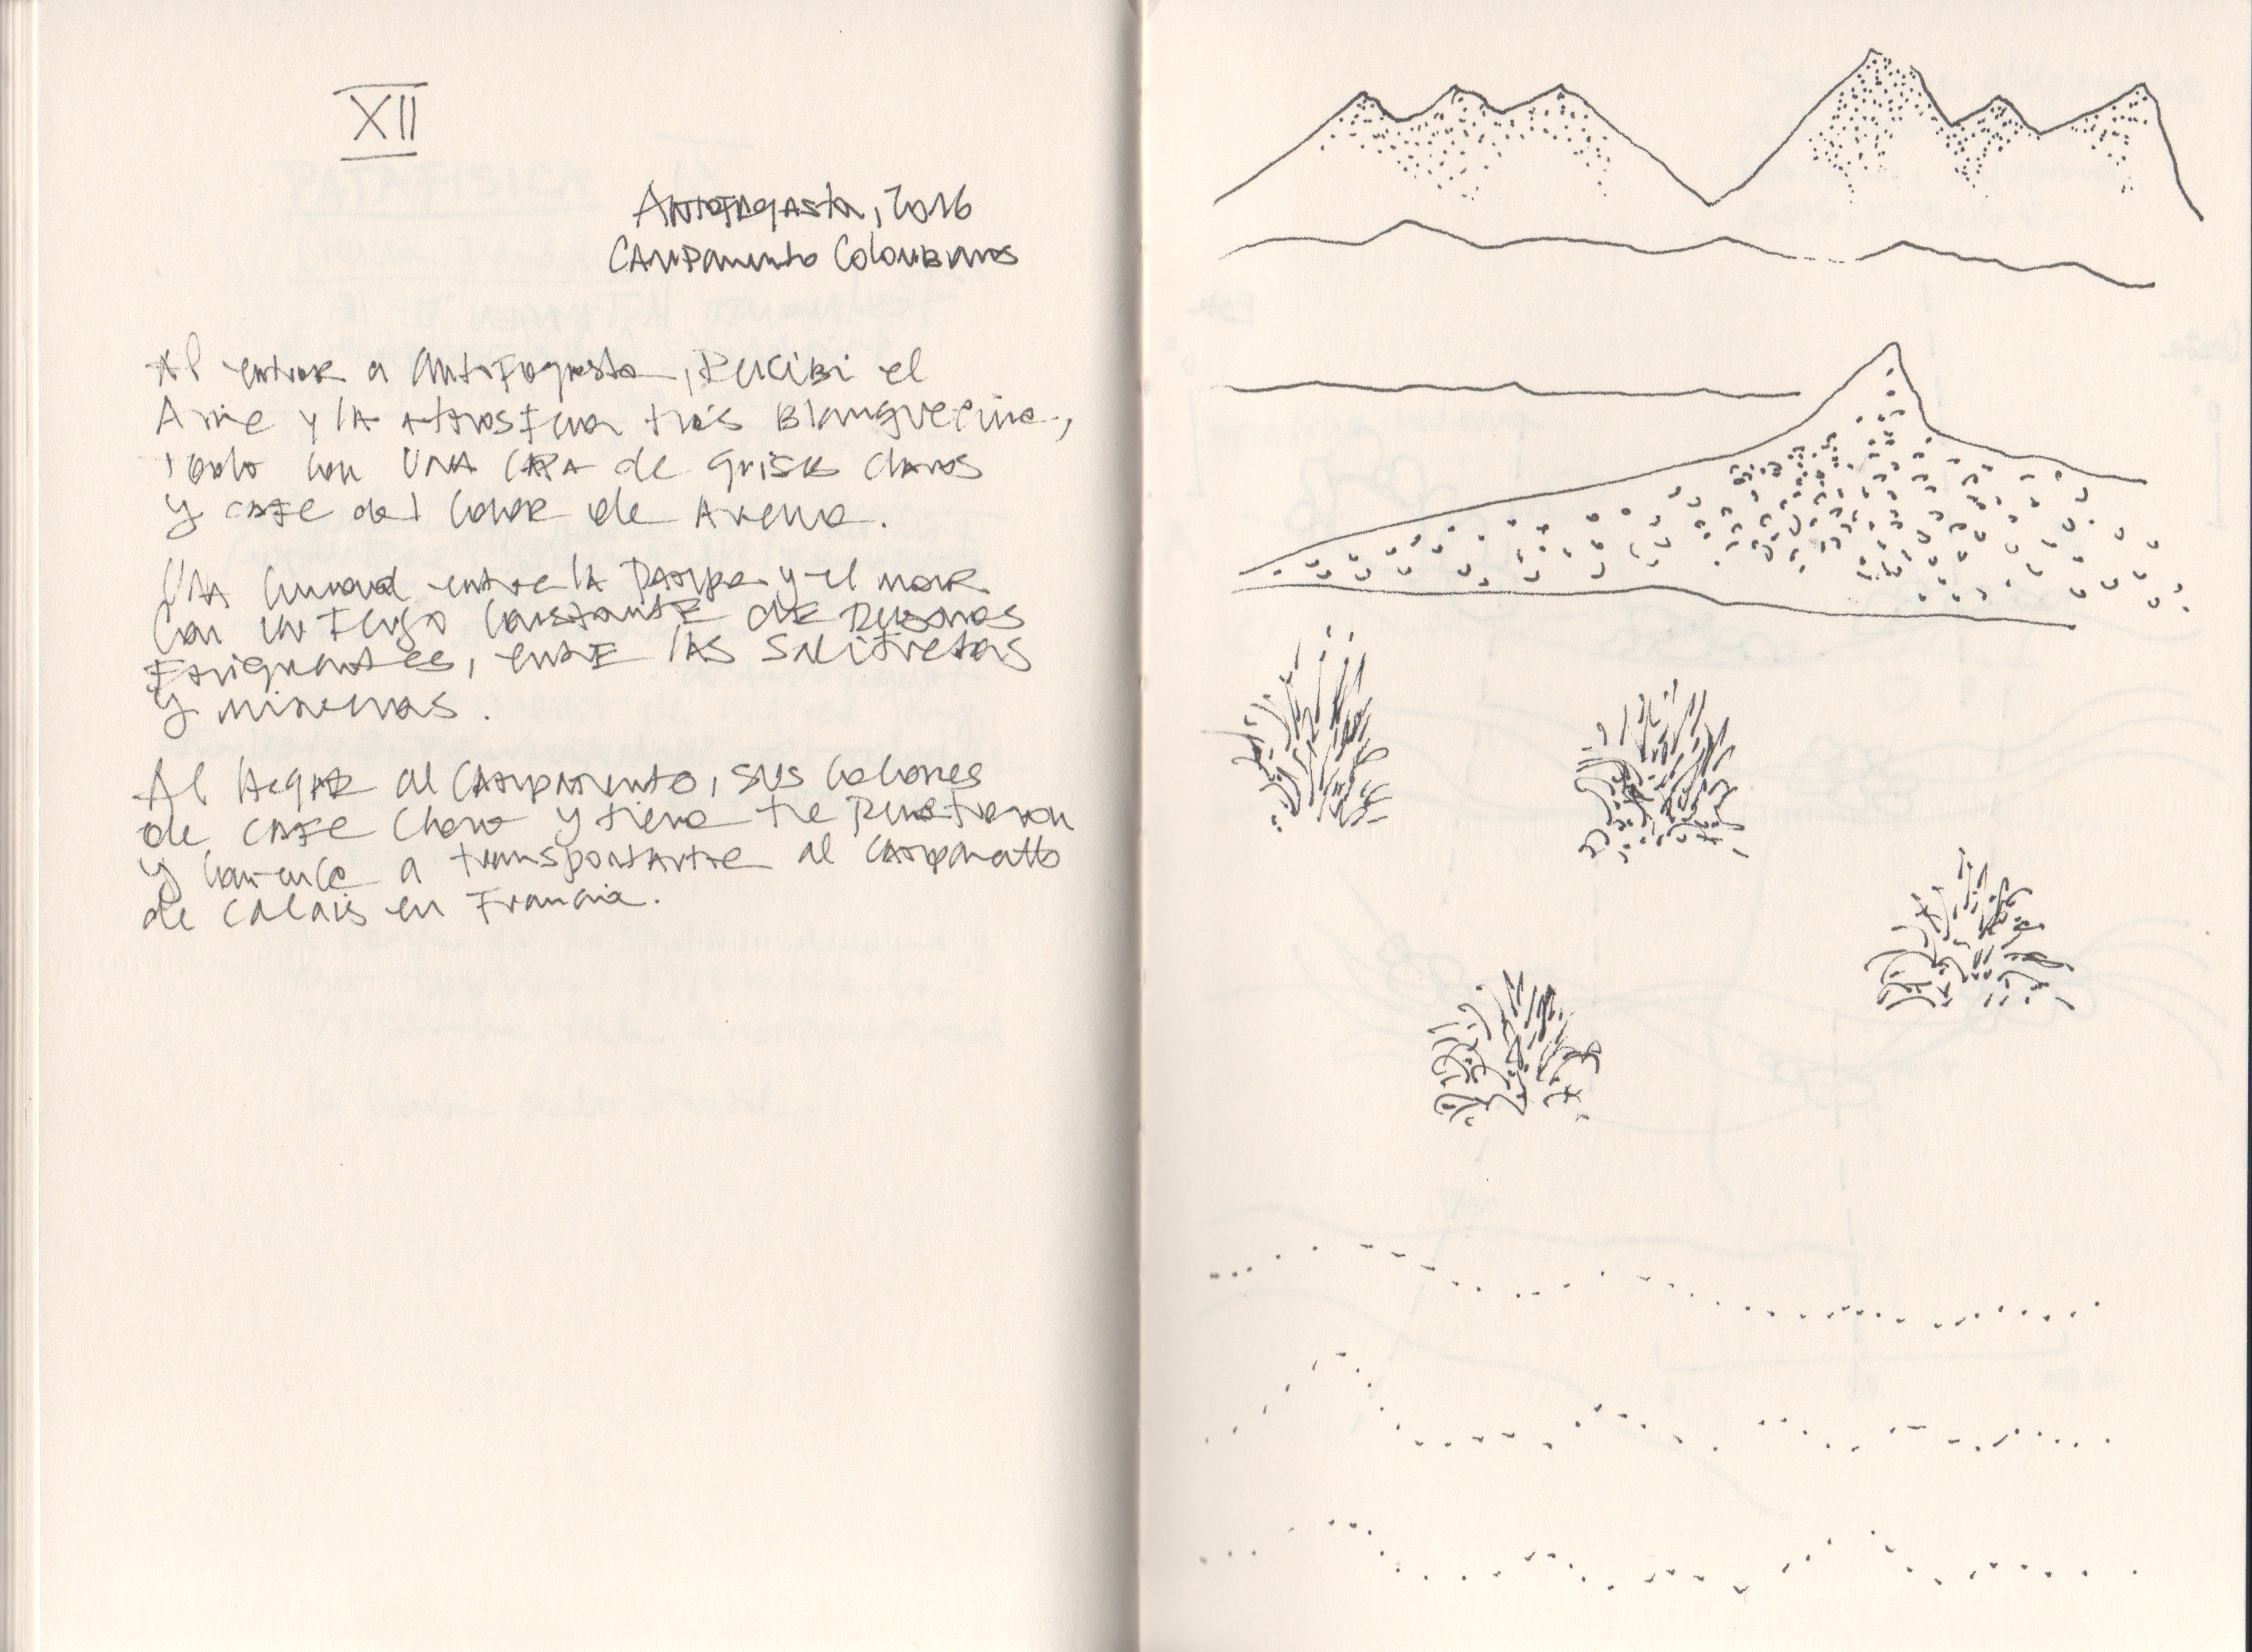 XII
Antofagasta, 2016
Campamento Colombianos
Al entrar a Antofagasta, recibi el
Aire y la atmosfera más Blanquecina,
todo con UNA CAPA de grises claros
y cafe del color de Arena.
UNA ciudad entre la Pampa y el mar
con un flujo constante de personas
, entre las salitreras
y mineras.
Al llegar al campamento, sus colores
de cafe claro y tierra
y comence a transportarme al campamento
de Calais en Francia.